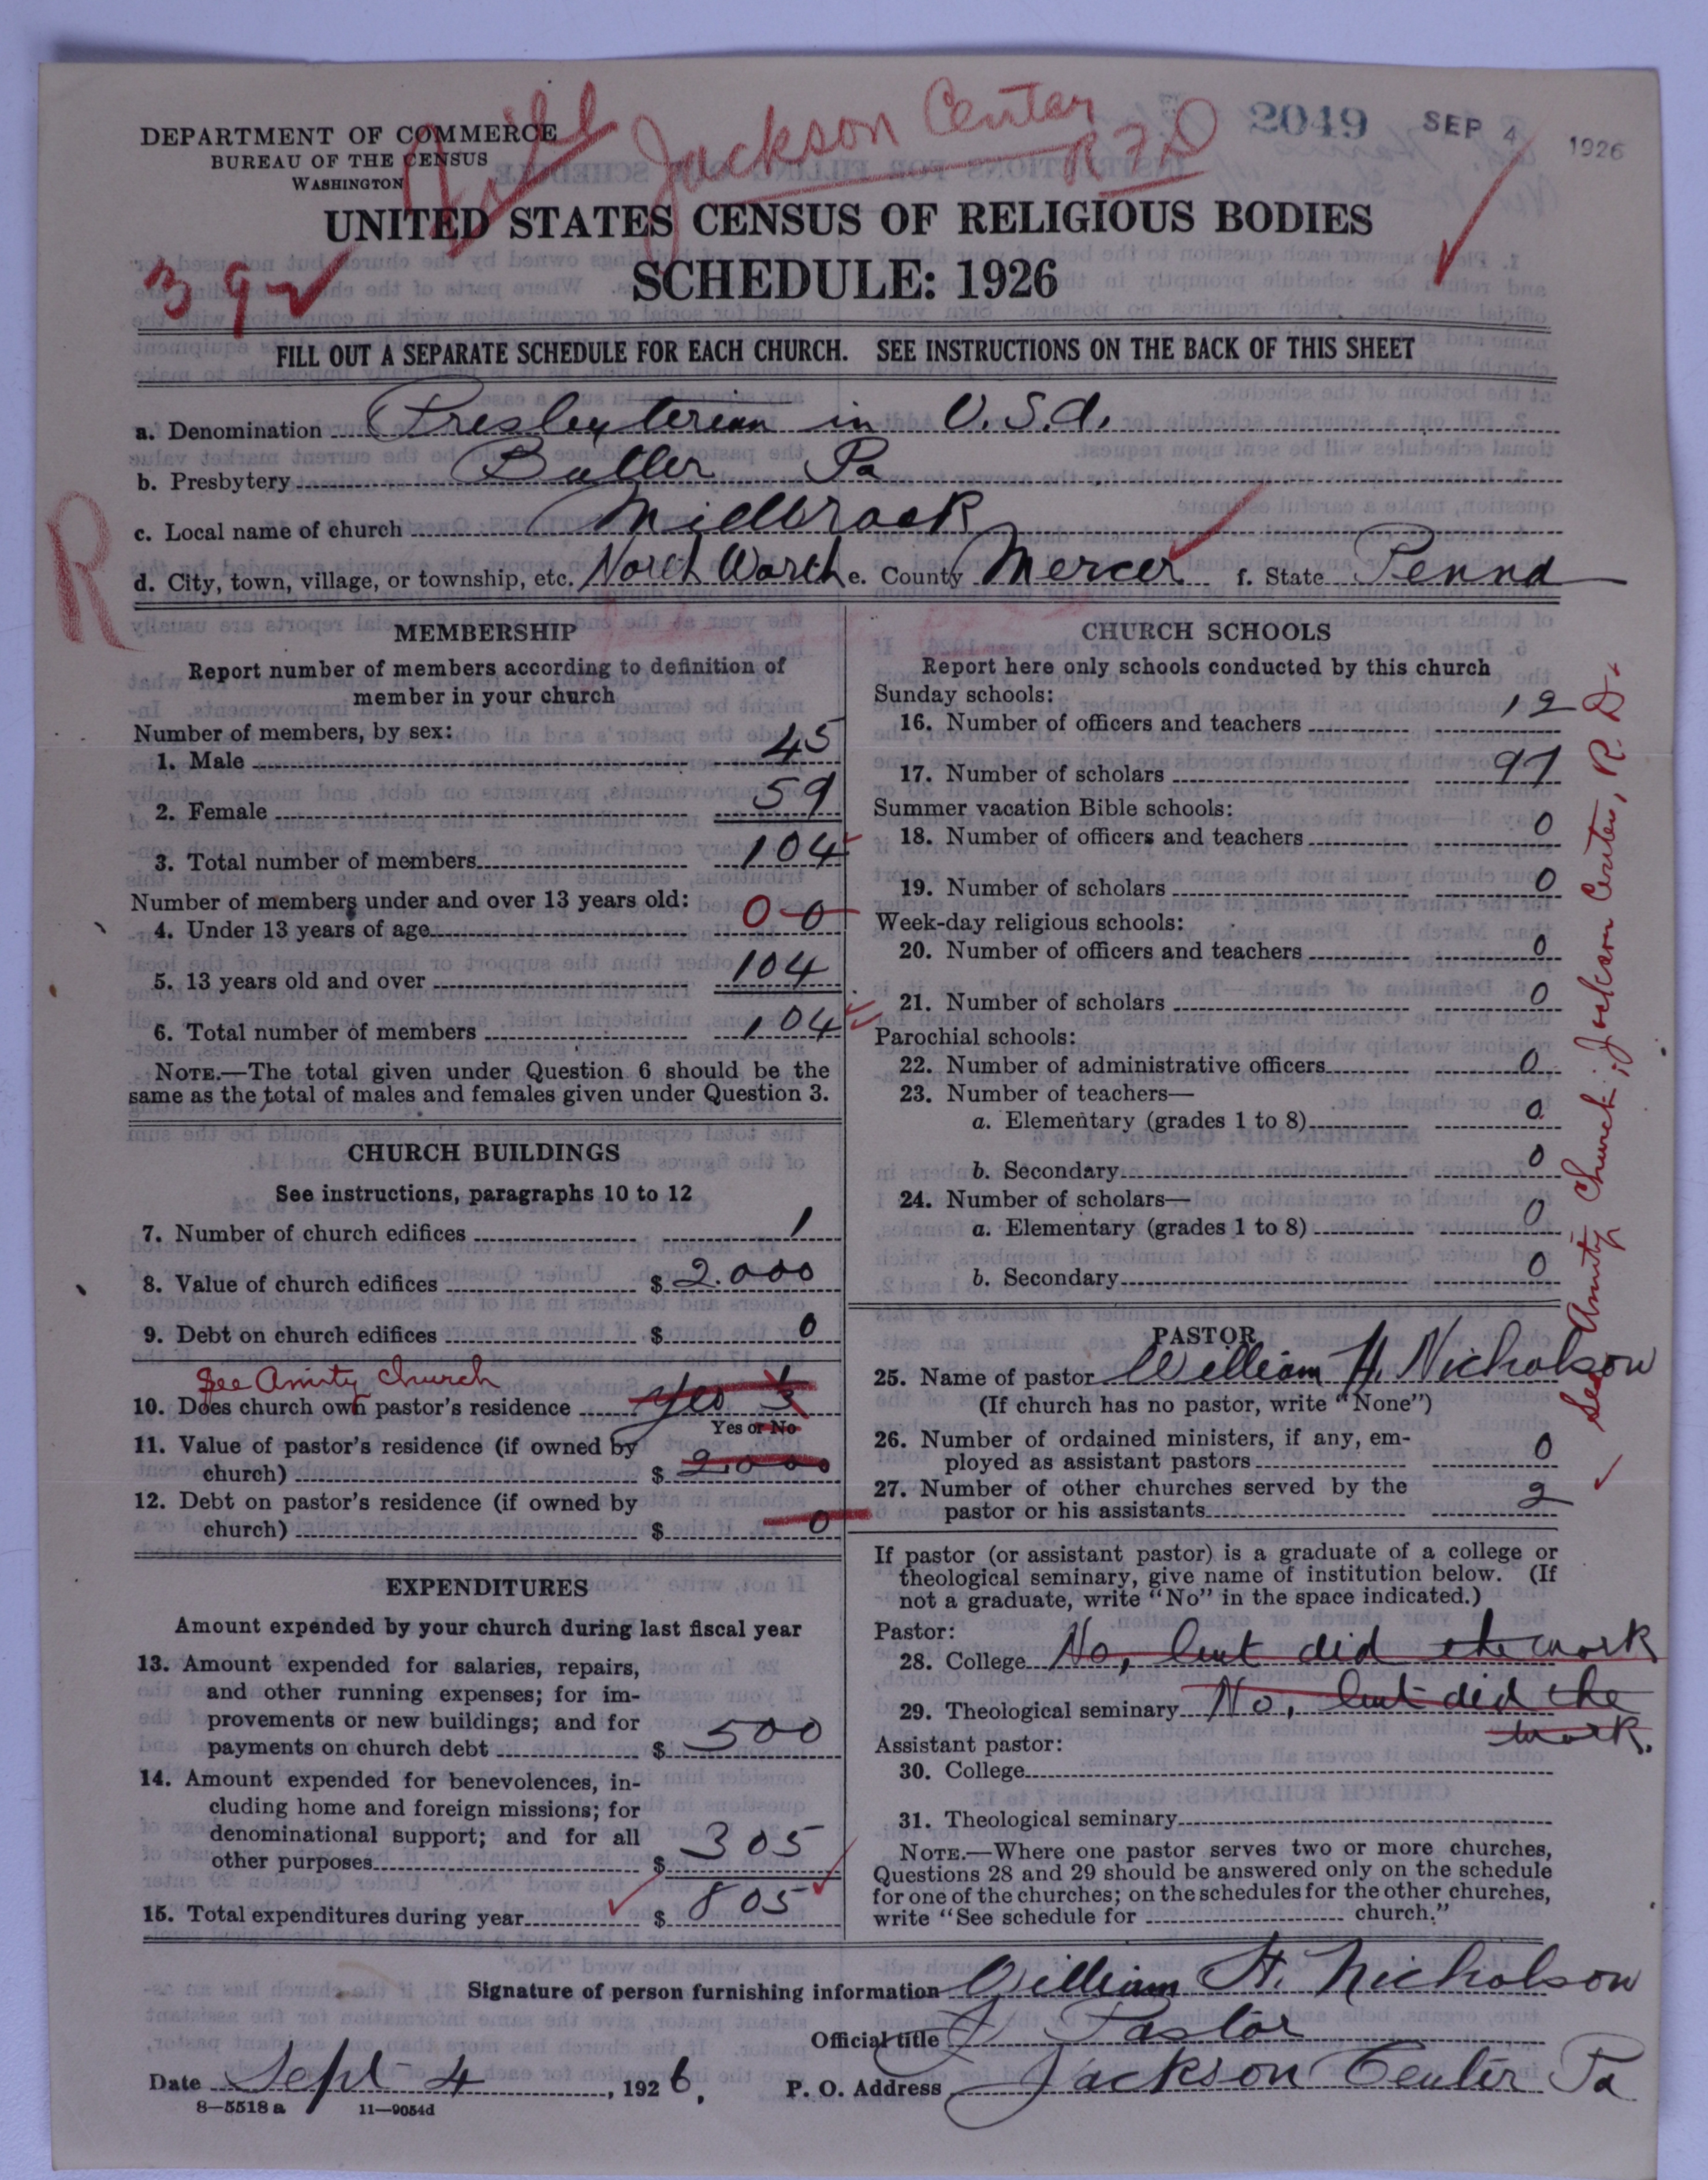 DEPARTMENT OF COMMERCE
BUREAU OF THE CENSUS
WASHINGTON
Jackson Center
RFD
2049 SEP 4 1926
UNITED STATES CENSUS OF RELIGIOUS BODIES
SCHEDULE: 1926
FILL OUT A SEPARATE SCHEDULE FOR EACH CHURCH. SEE INSTRUCTIONS ON THE BACK OF THIS SHEET
a. Denomination Presbyterian in U.S.A.
b. Presbytery Butler Pa
c. Local name of church Millbrook
R
d. City, town, village, or township, etc. North Worth e. County Mercer f. State Penna
MEMBERSHIP
Report number of members according to definition of
member in your church
Number of members, by sex:
1. Male 45
2. Female 59
3. Total number of members 104
Number of members under and over 13 years old:
4. Under 13 years of age 0 0
5. 13 years old and over 104
6. Total number of members 104
NOTE.—The total given under Question 6 should be the
same as the total of males and females given under Question 3.
CHURCH BUILDINGS
See instructions, paragraphs 10 to 12
7. Number of church edifices 1
8. Value of church edifices $ 2.000
9. Debt on church edifices $ 0
See Amity Church
10. Does church own pastor's residence Yes 1/3
Yes or No
11. Value of pastor's residence (if owned by
church) $ 2.000
12. Debt on pastor's residence (if owned by
church) $ 0
EXPENDITURES
Amount expended by your church during last fiscal year
13. Amount expended for salaries, repairs,
and other running expenses; for im-
provements or new buildings; and for
payments on church debt $ 500
14. Amount expended for benevolences, in-
cluding home and foreign missions; for
denominational support; and for all
other purposes $ 305
15. Total expenditures during year $ 805
CHURCH SCHOOLS
Report here only schools conducted by this church
Sunday schools:
16. Number of officers and teachers 12
17. Number of scholars 97
Summer vacation Bible schools:
18. Number of officers and teachers 0
19. Number of scholars 0
Week-day religious schools:
20. Number of officers and teachers 0
21. Number of scholars 0
Parochial schools:
22. Number of administrative officers 0
23. Number of teachers—
a. Elementary (grades 1 to 8) 0
b. Secondary 0
24. Number of scholars—
a. Elementary (grades 1 to 8) 0
b. Secondary 0
PASTOR
25. Name of pastor William H. Nicholson
(If church has no pastor, write "None")
26. Number of ordained ministers, if any, em-
ployed as assistant pastors 0
27. Number of other churches served by the
pastor or his assistants 2
If pastor (or assistant pastor) is a graduate of a college or
theological seminary, give name of institution below. (If
not a graduate, write "No" in the space indicated.)
Pastor:
28. College No, but did the work
29. Theological seminary No, but did the
work.
Assistant pastor:
30. College
31. Theological seminary
NOTE.—Where one pastor serves two or more churches,
Questions 28 and 29 should be answered only on the schedule
for one of the churches; on the schedules for the other churches,
write "See schedule for church."
See Amity Church; Jackson Center, R. D.
Signature of person furnishing information William H. Nicholson
Official title Pastor
Date Sept 4, 1926. P. O. Address Jackson Center Pa
8—5518 a 11—9054d